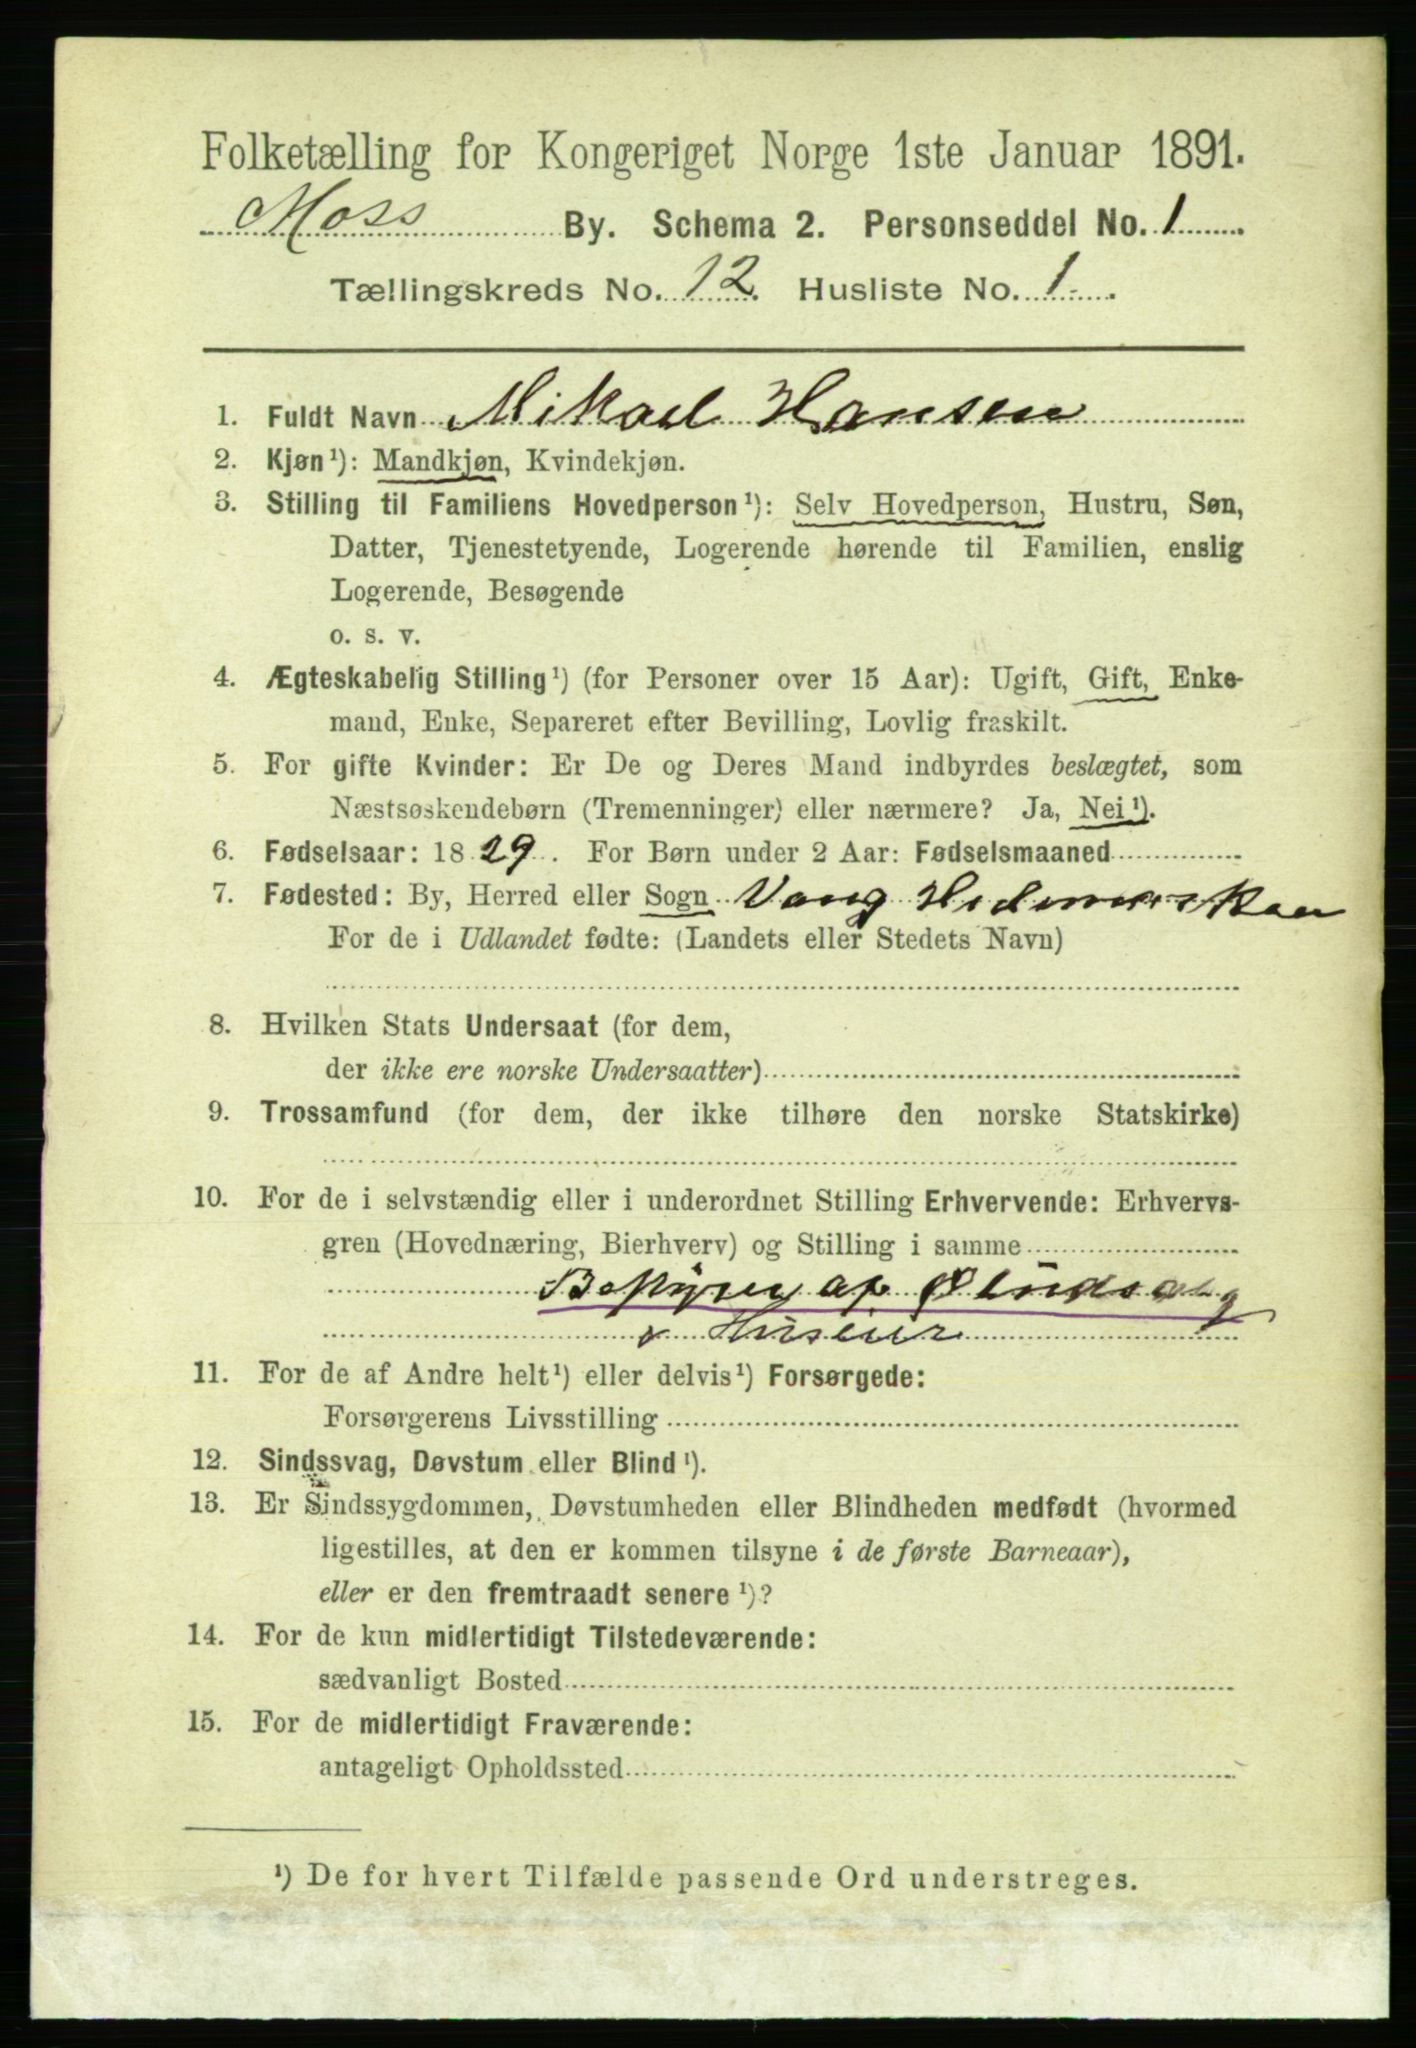 Folketælling for Kongeriget Norge 1ste Januar 1891.
Moss By. Schema 2. Personseddel No. 1
Tællingskreds No. 12. Husliste No. 1.
1. Fuldt Navn Mikael Hansen
2. Kjøn¹): Mandkjøn, Kvindekjøn.
3. Stilling til Familiens Hovedperson¹): Selv Hovedperson, Hustru, Søn,
Datter, Tjenestetyende, Logerende hørende til Familien, enslig
Logerende, Besøgende
o. s. v.
4. Ægteskabelig Stilling¹) (for Personer over 15 Aar): Ugift, Gift, Enke-
mand, Enke, Separeret efter Bevilling, Lovlig fraskilt.
5. For gifte Kvinder: Er De og Deres Mand indbyrdes beslægtet, som
Næstsøskendebørn (Tremenninger) eller nærmere? Ja, Nei¹).
6. Fødselsaar: 1829. For Børn under 2 Aar: Fødselsmaaned
7. Fødested: By, Herred eller Sogn Vang Hedemarken
For de i Udlandet fødte: (Landets eller Stedets Navn)
8. Hvilken Stats Undersaat (for dem,
der ikke ere norske Undersaatter)
9. Trossamfund (for dem, der ikke tilhøre den norske Statskirke)
10. For de i selvstændig eller i underordnet Stilling Erhvervende: Erhvervs-
gren (Hovednæring, Bierhverv) og Stilling i samme
Bestyrer af Øludsalg
x Huseier
11. For de af Andre helt¹) eller delvis¹) Forsørgede:
Forsørgerens Livsstilling
12. Sindssvag, Døvstum eller Blind¹).
13. Er Sindssygdommen, Døvstumheden eller Blindheden medfødt (hvormed
ligestilles, at den er kommen tilsyne i de første Barneaar),
eller er den fremtraadt senere¹)?
14. For de kun midlertidigt Tilstedeværende:
sædvanligt Bosted
15. For de midlertidigt Fraværende:
antageligt Opholdssted
¹) De for hvert Tilfælde passende Ord understreges.